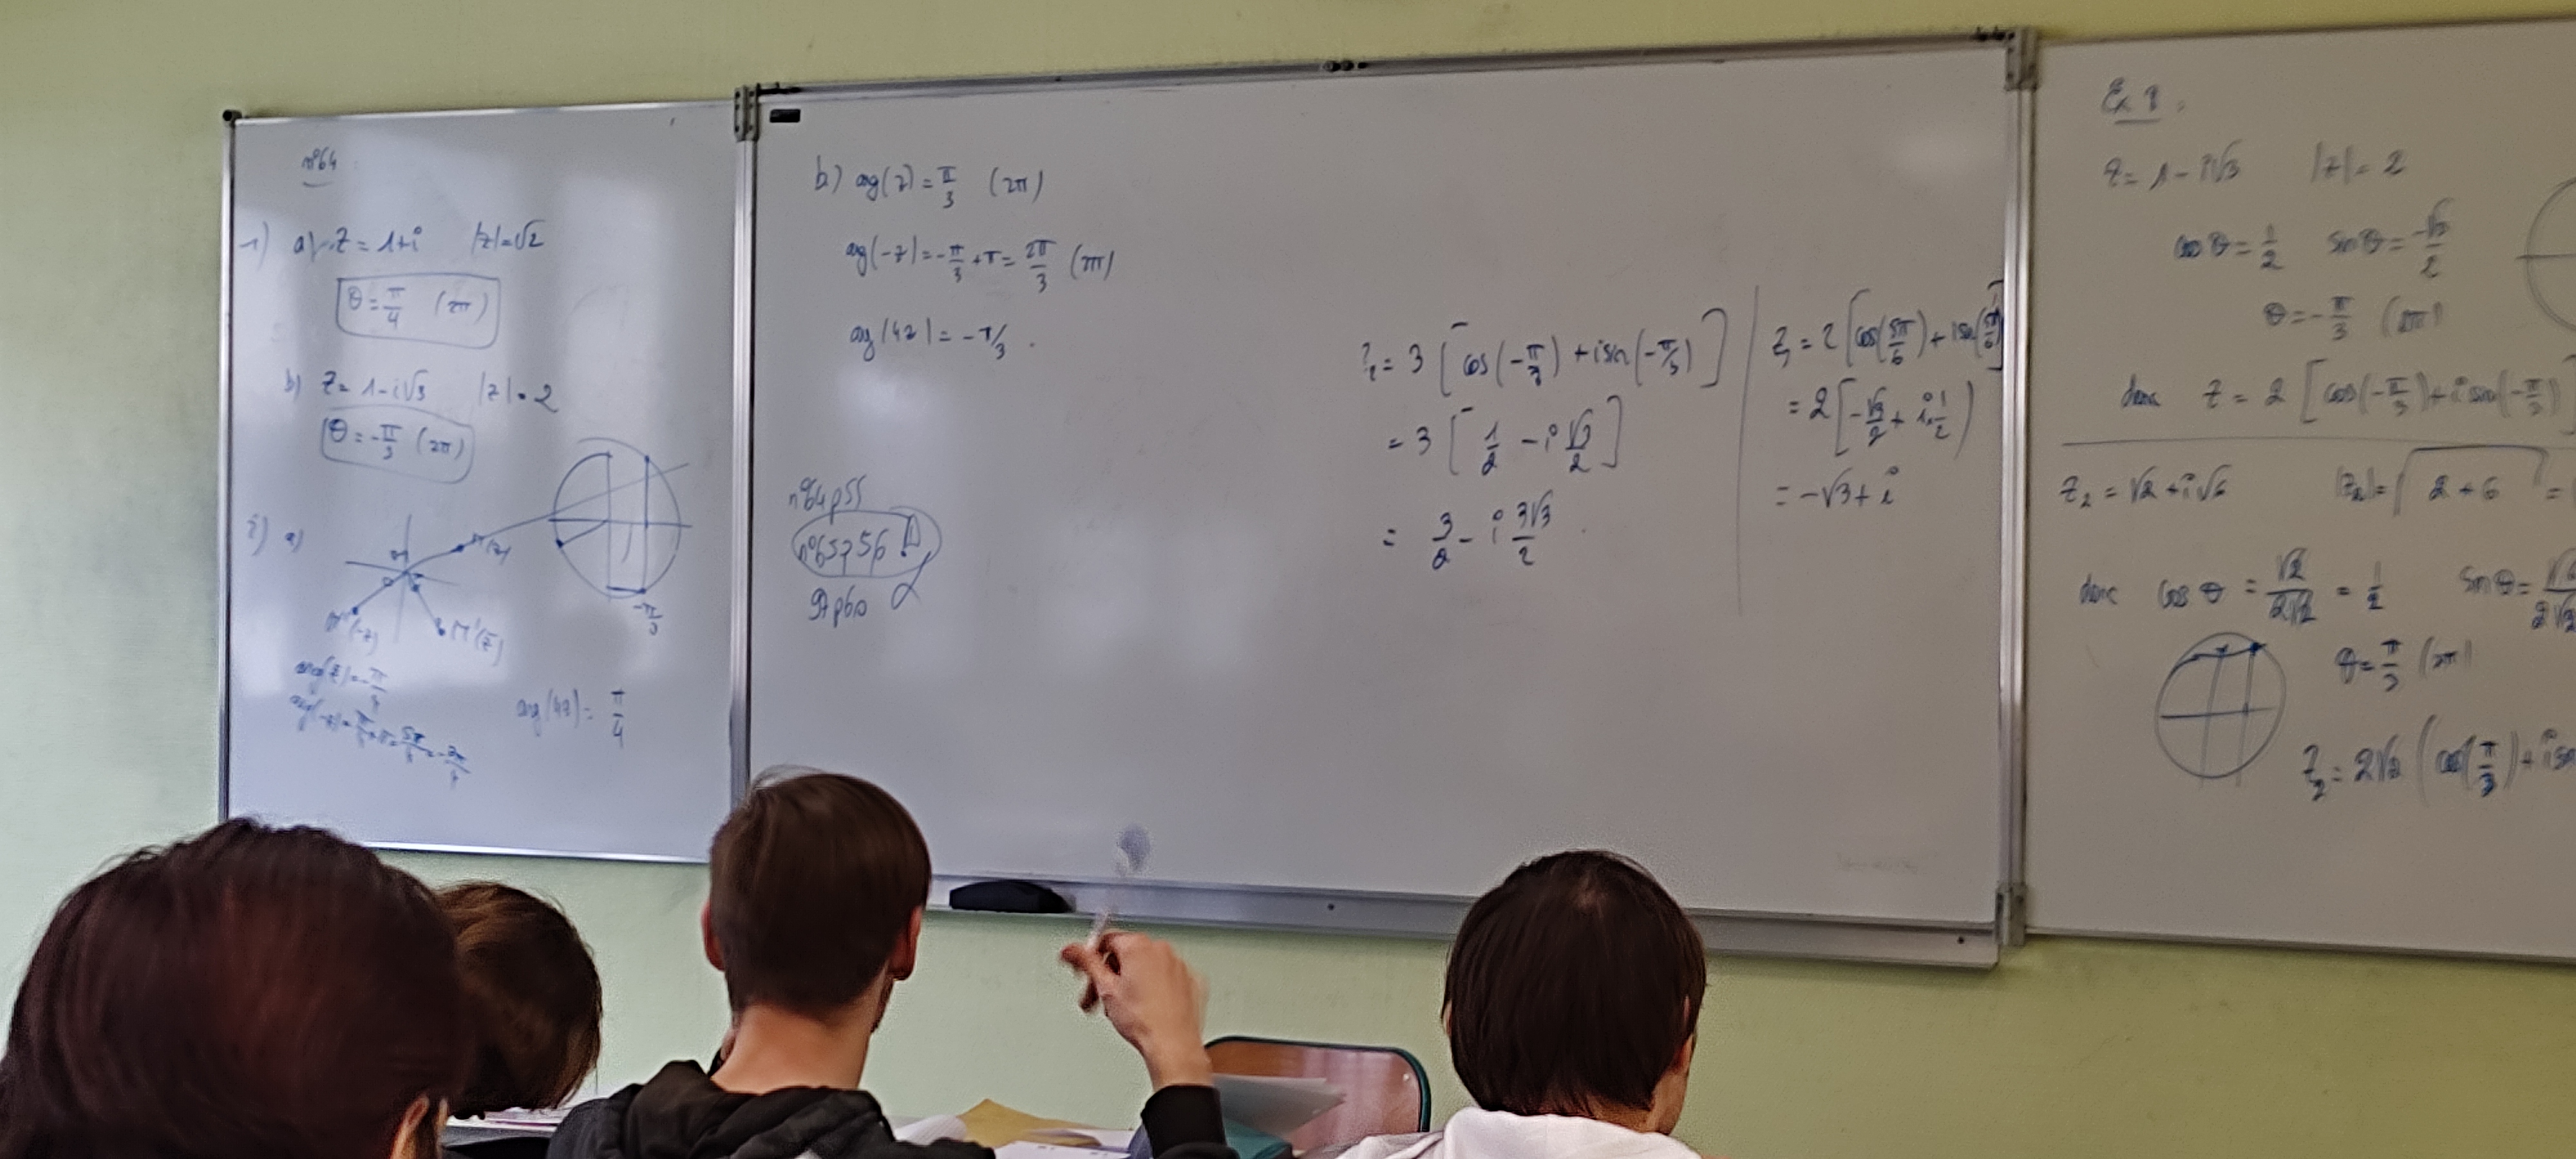 n°64
1) a) z = 1+i |z|=√2
θ = π/4 (2π)
b) z = 1-i√3 |z| = 2
θ = -π/3 (2π)
2) a)
M(z)
M''(-z) M'(z̄)
-π/3
arg(z̄) = -π/4
arg(-z) = π/4+π = 5π/4 = -3π/4
arg(4z) = π/4
b) arg(z̄) = π/3 (2π)
arg(-z) = -π/3 + π = 2π/3 (2π)
arg(4z) = -π/3.
n°64p55
n°65p56
97p60
= 3 [cos(-π/3) + i sin(-π/3)]
= 3 [1/2 - i √3/2]
= 3/2 - i 3√3/2
z₁ = 2 [cos(5π/6) + i sin(5π/6)]
= 2 [-√3/2 + i·1/2]
= -√3 + i
z = 1 - i√3 |z| = 2
cos θ = 1/2 sin θ = -√3/2
θ = -π/3 (2π)
donc z = 2 [cos(-π/3) + i sin(-π/3)]
z₂ = √2 + i√6 |z₂| = √(2+6) =
donc cos θ = √2/2√2 = 1/2 sin θ = √6/2√2
θ = π/3 (2π)
z₂ = 2√2 (cos(π/3) + i sin